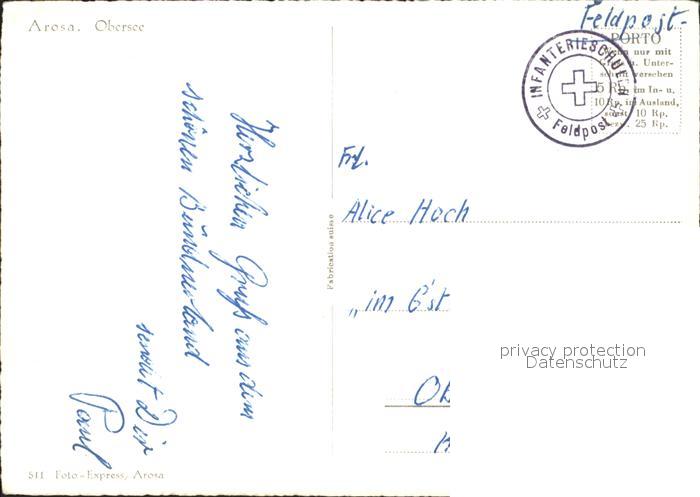 Arosa. Obersee
Feldpost-
PORTO
nur mit
Unter-
versehen
5 Rp. im In- u.
10 Rp. im Ausland,
sonst 10 Rp.
bezw. 25 Rp.
INFANTERIESCHULEN
Feldpost
Herzlichen Gruss aus dem
schönen Bündnerland
sendet Dir
Paul
Frl.
Alice Hoch
„im G'st
Ob
Fabrication suisse
privacy protection
Datenschutz
511 Foto-Express, Arosa